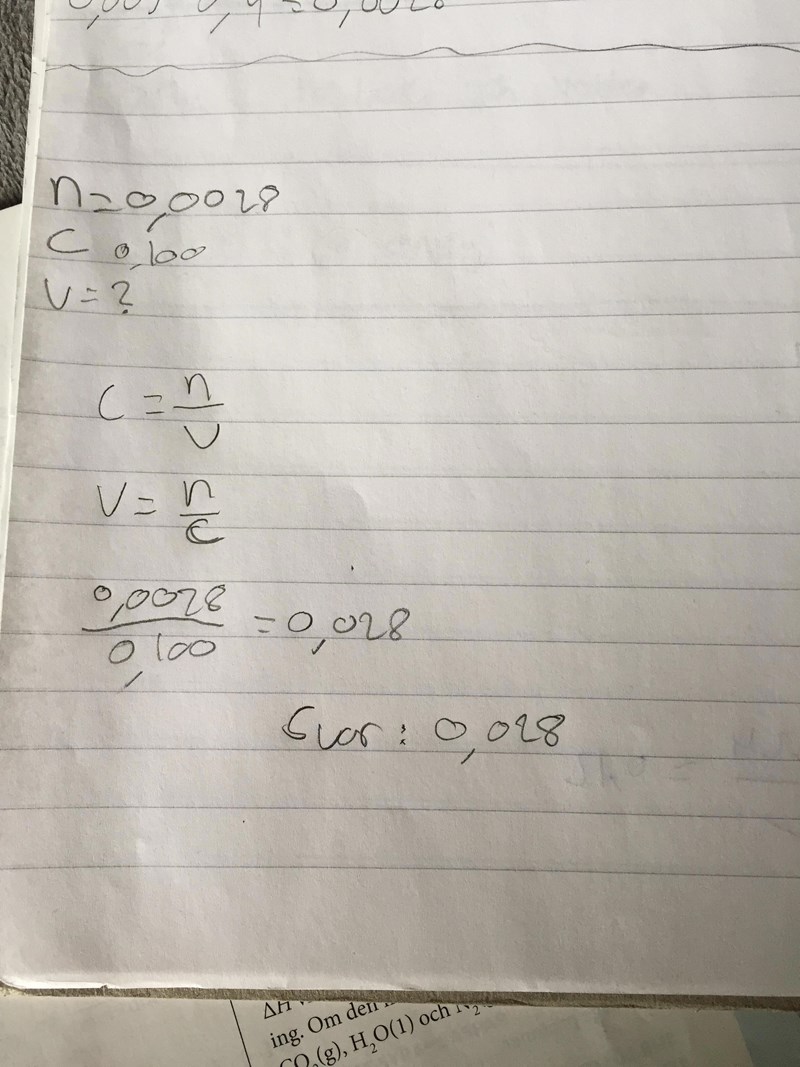 = 0,0028
n=0,0028
C 0,100
V=?
C = n/V
V = n/C
0,0028/0,100 = 0,028
Svar: 0,028
ΔH
ing. Om den
CO₂(g), H₂O(l) och N₂